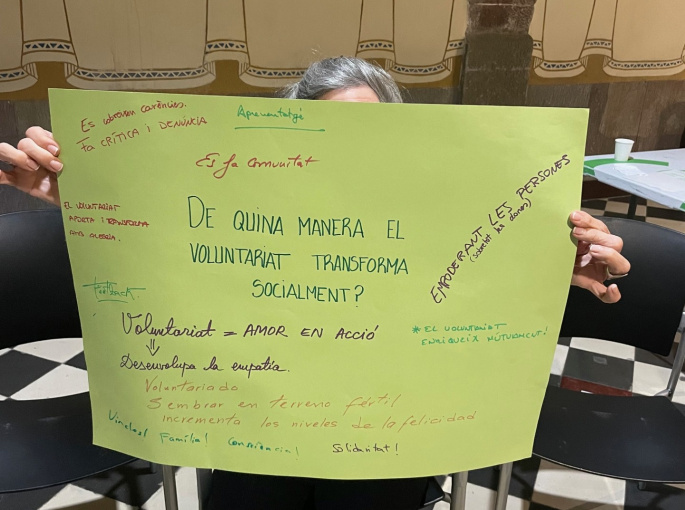 Es cobreixen carències.
Fa CRÍTICA i DENÚNCIA
Aprenentatge
Es fa Comunitat
EL VOLUNTARIAT
APORTA I TRANSFORMA
AMB ALEGRIA.
DE QUINA MANERA EL
VOLUNTARIAT TRANSFORMA
SOCIALMENT?
EMPODERANT LES PERSONES
(sobretot les dones)
Voluntariat = AMOR EN ACCIÓ
⇓
Desenvolupa la empatia.
* EL VOLUNTARIAT
ENRIQUEIX MUTUAMENT!
Voluntariado
Sembrar en terreno fértil
incrementa los niveles de la felicidad
Família!
Consciència!
Solidaritat!